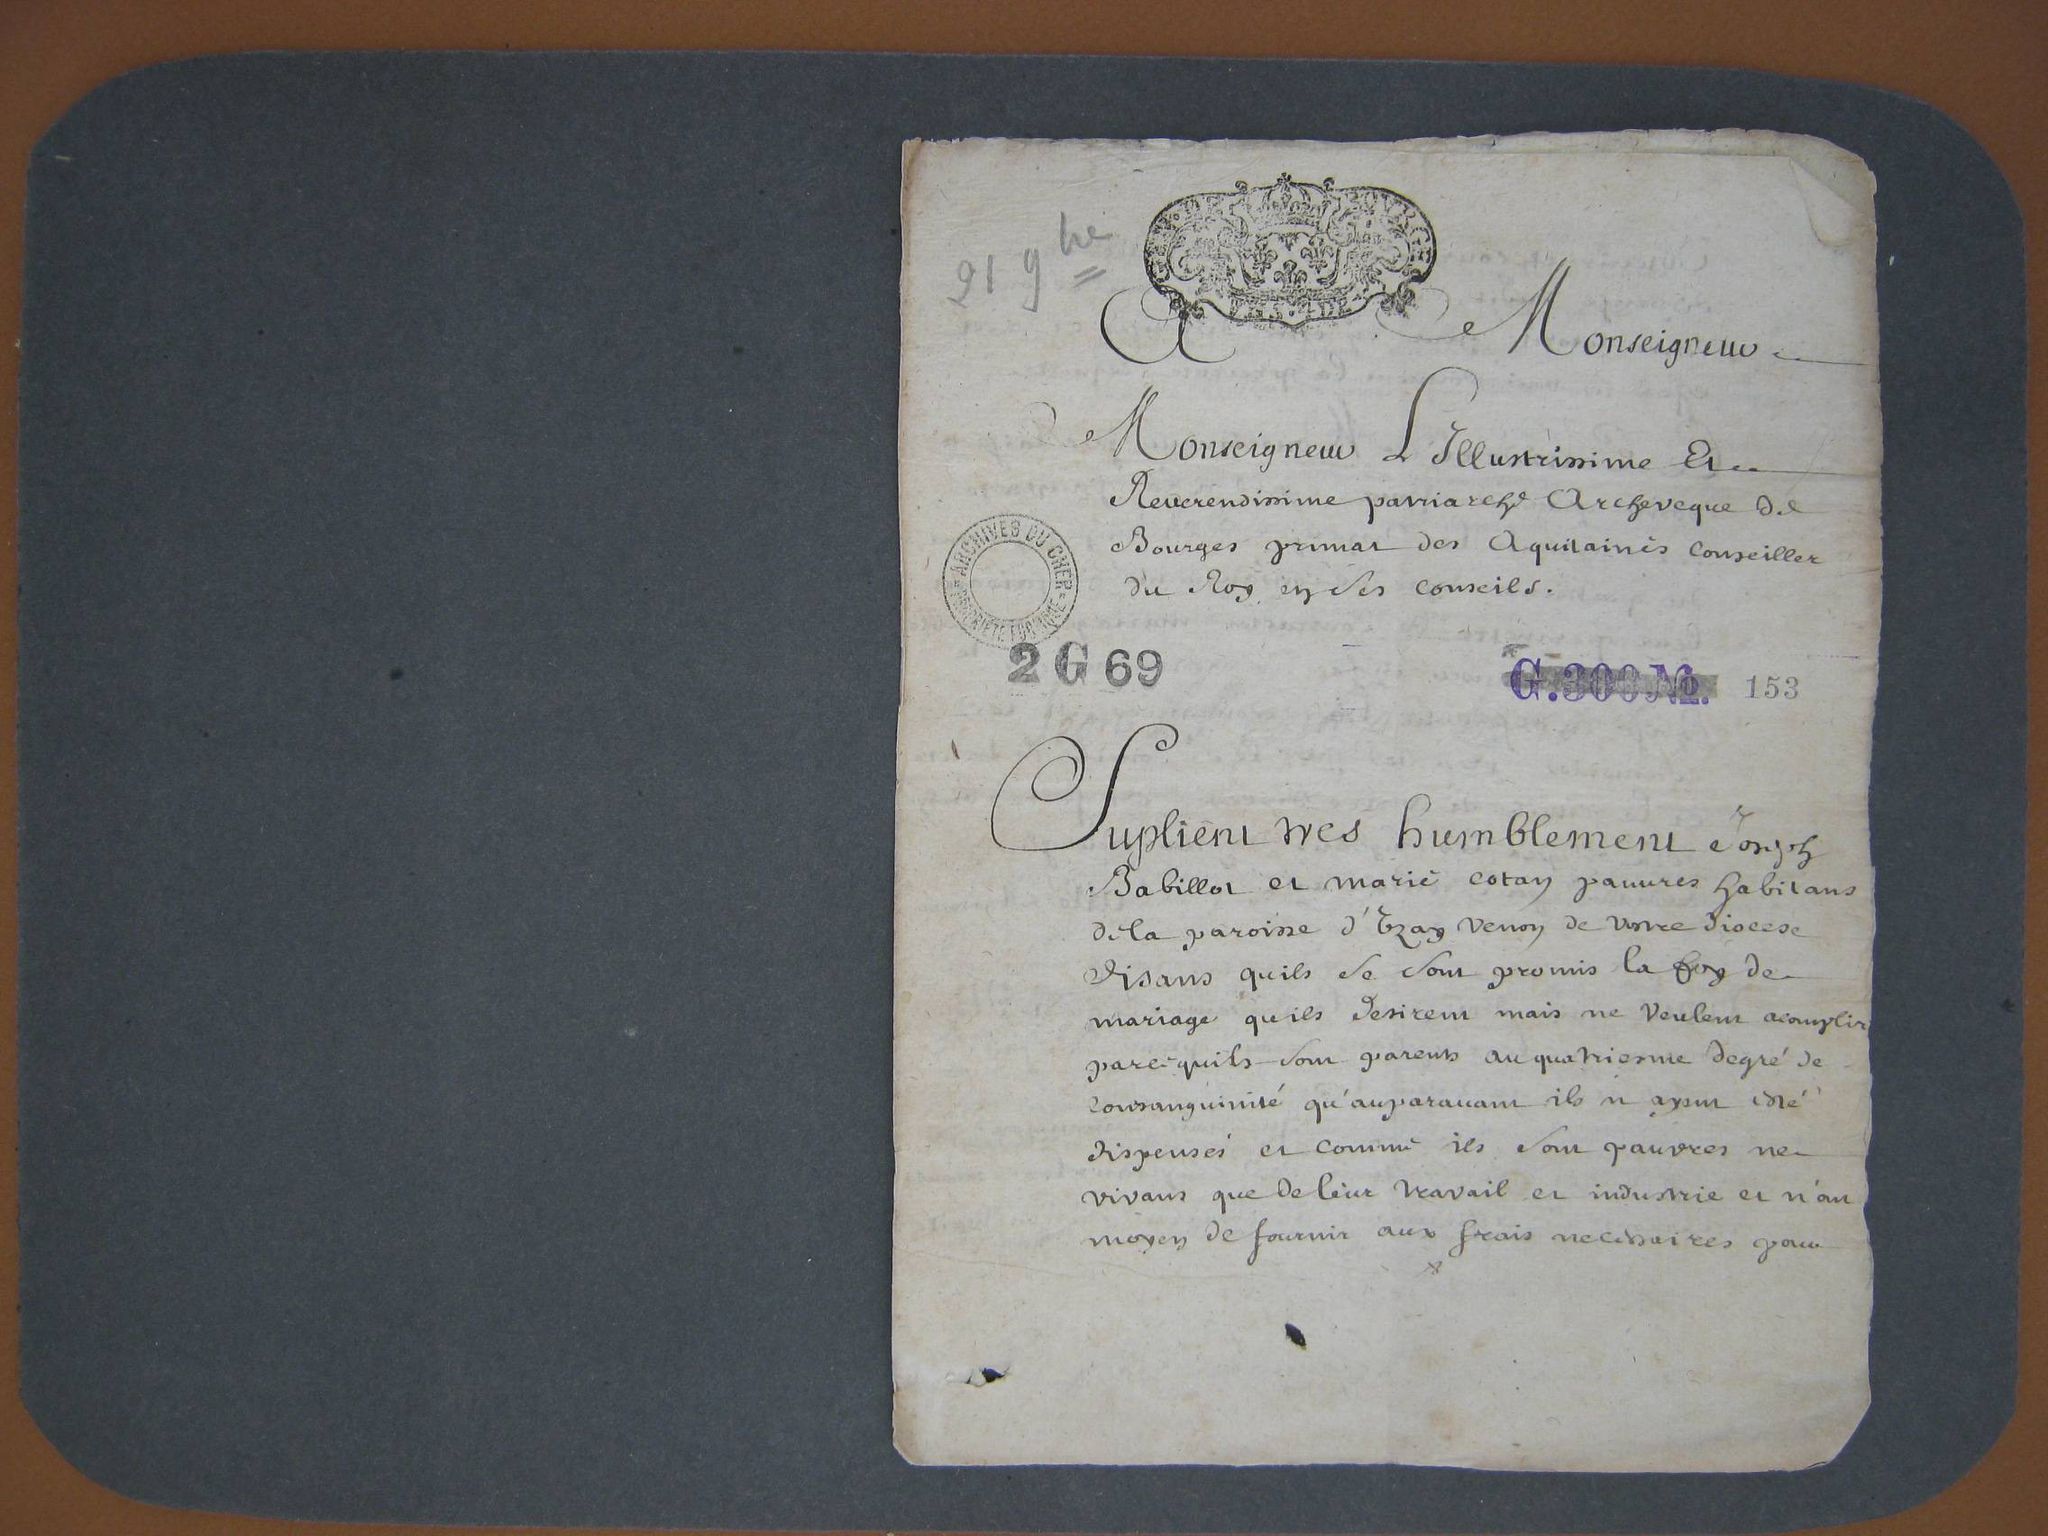 21 9bre
A Monseigneur
Monseigneur L Illustrissime Et
Reverendissime patriarche Archeveque de
Bourges primat des Aquitaines Conseiller
du Roy en ses conseils.
ARCHIVES DU CHER
PROPRIETE PUBLIQUE
2 G 69
G.300 No. 153
Suplient tres humblement Joseph
Babillot et marie cotan pauures habitans
de la paroisse d'Ezay venon de vostre diocese
disans quils se sont promis la foy de
mariage quils desirent mais ne veulent acomplir
parcequils sont parents au quatriesme degré de
consanguinité qu'auparauant ils n aysnt esté
dispensés et comme ils sont pauvres ne
vivans que de leur travail et industrie et n'ont
moyen de fournir aux frais necessaires pour